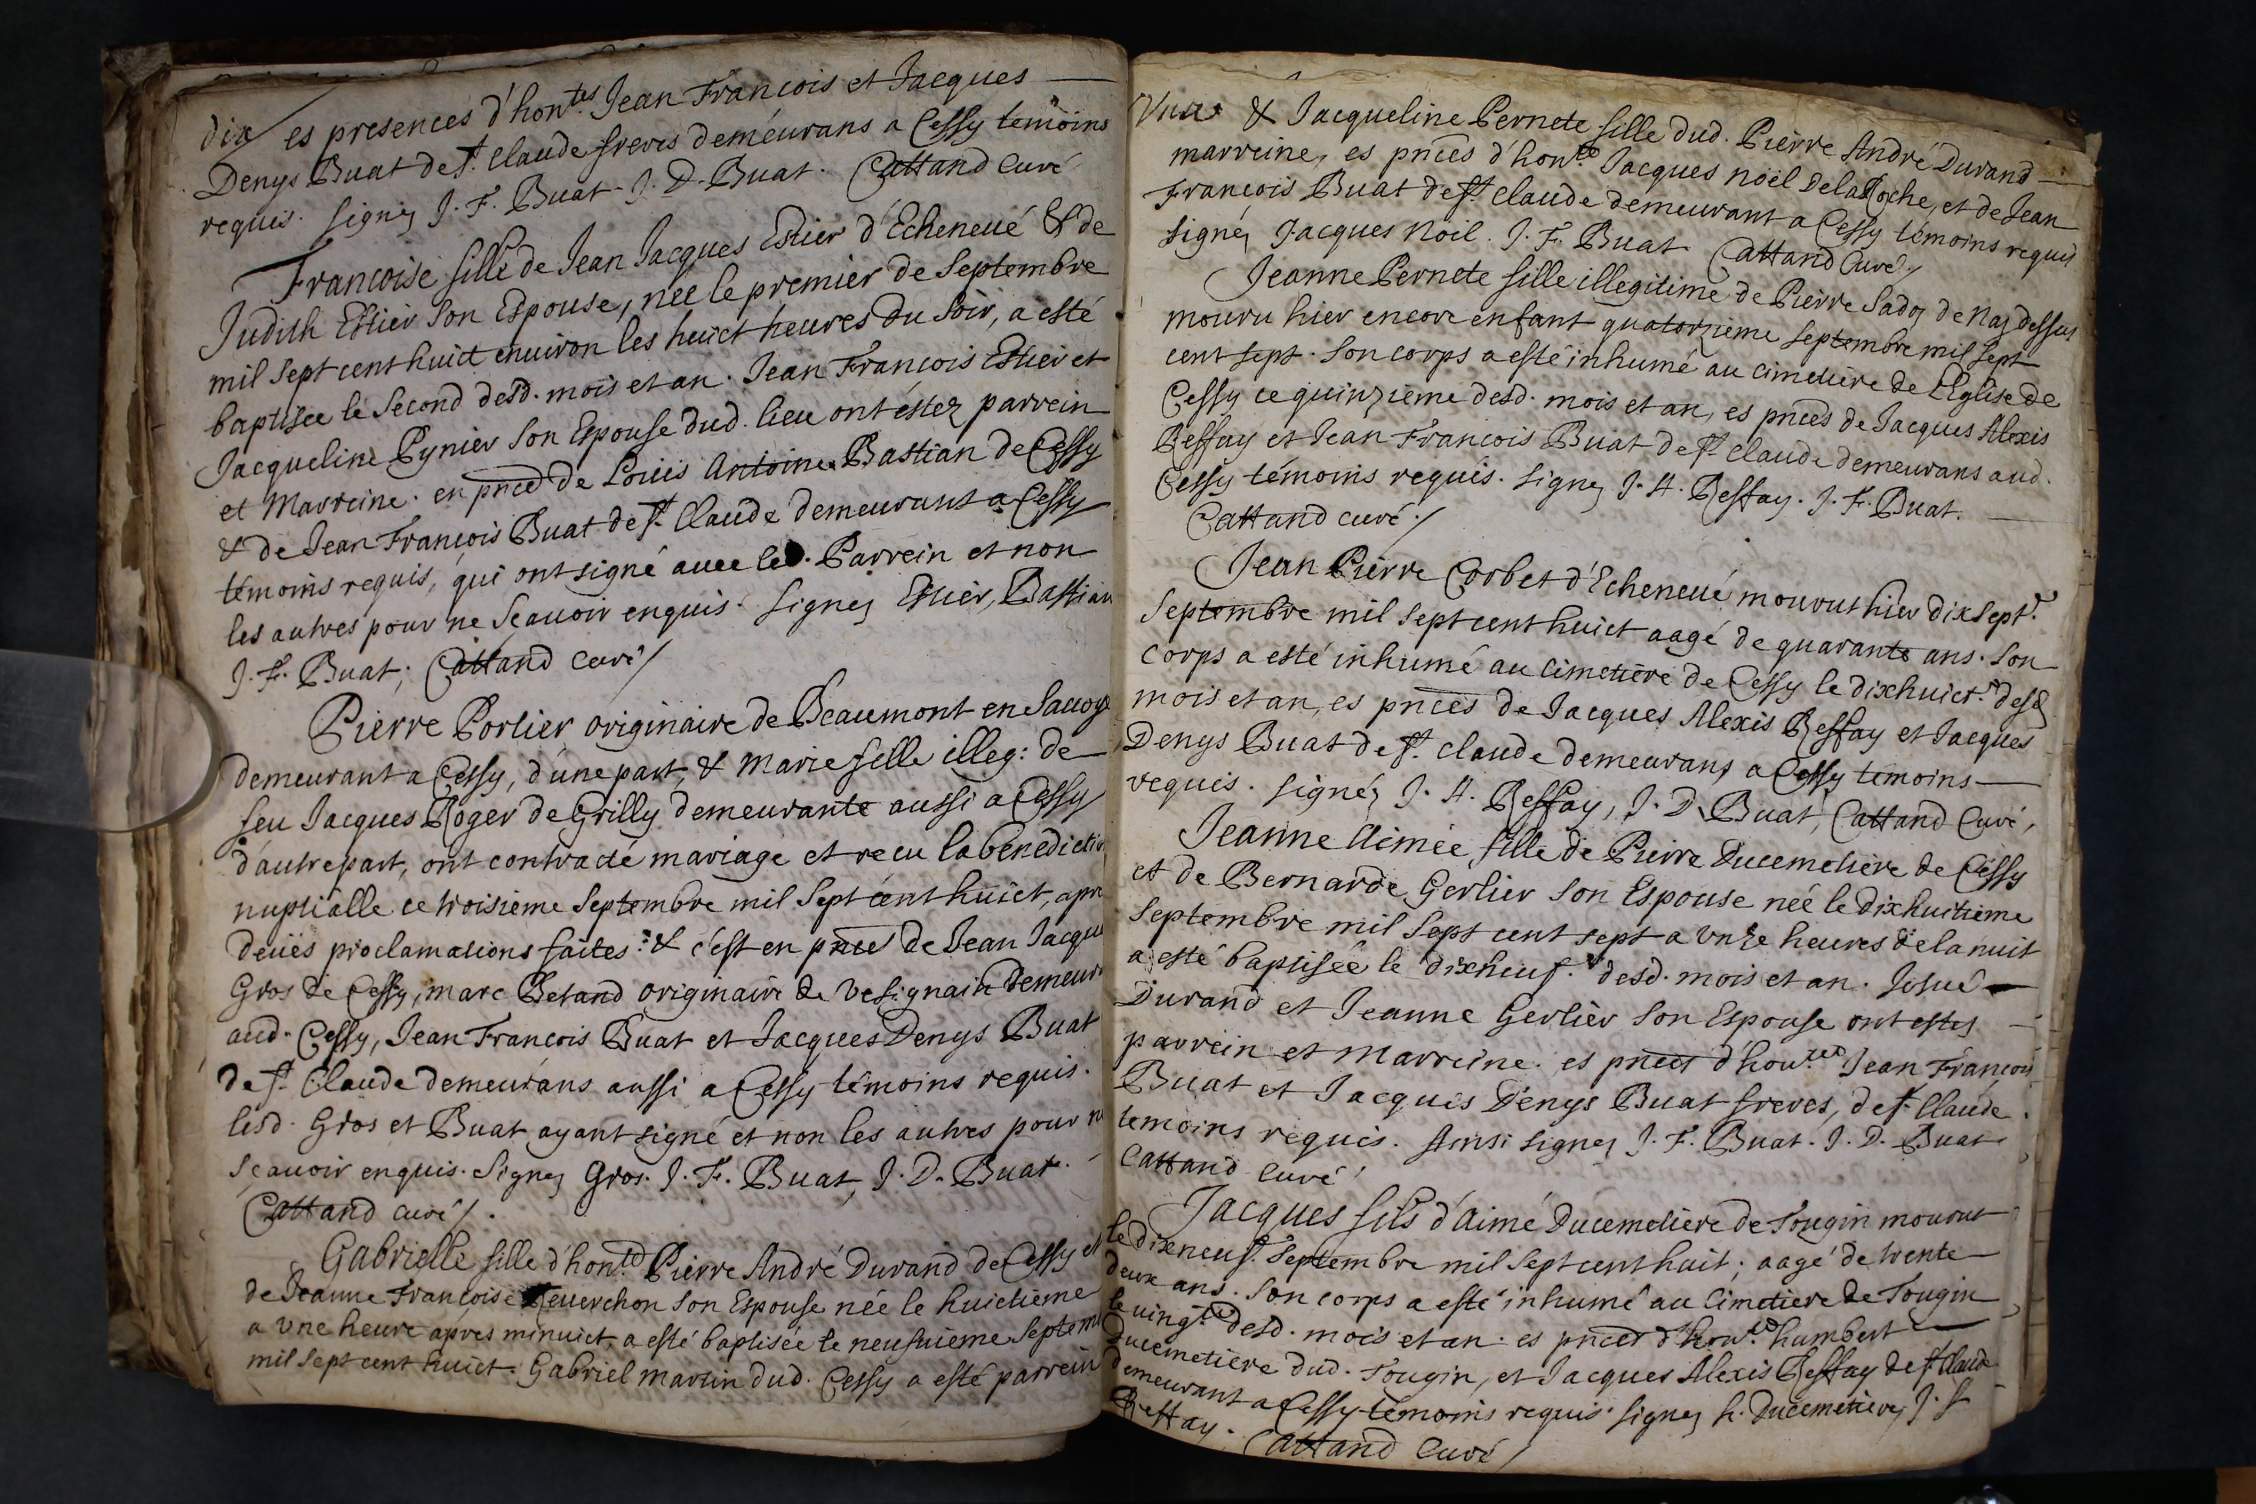 dix es presences d'hon.tes Jean François et Jacques
Denys Buat de st Claude freres demeurans a Cessy témoins
requis. signez J. F. Buat. J. D. Buat. Cattand Curé
Françoise fille de Jean Jacques Estier d'Echeneué & de
Judith Estier son Espouse, née le premier de septembre
mil sept cent huict enuiron les huict heures du soir, a esté
baptisée le second desd. mois et an. Jean François Estier et
Jacqueline Pynier son Espouse dud. lieu ont estez parrein
et Marreine. en pnce de Louis Antoine Bastian de Cessy
& de Jean François Buat de st Claude demeurant a Cessy
témoins requis, qui ont signé auec led. Parrein et non
les autres pour ne scauoir enquis. signez Estier, Bastian
J. F. Buat; Cattand curé
Pierre Porlier originaire de Beaumont en Sauoye
demeurant a Cessy, d'une part, & Marie fille illeg: de
feu Jacques Roger de Grilly demeurante aussi a Cessy
d'autre part, ont contracté mariage et recu la benedictio
nuptialle ce troisieme septembre mil sept cent huict, apre
deües proclamations faites: & c'est en pnce de Jean Jacque
Gros de Cessy, marc Betand originaire de Vesignain demeur
aud. Cessy, Jean François Buat et Jacques Denys Buat
de st Claude demeurans aussi a Cessy témoins requis.
lesd. Gros et Buat ayant signé et non les autres pour n
scauoir enquis. signez Gros. J. F. Buat, J. D. Buat.
Cattand curé.
Gabrielle fille d'hon.ted Pierre André Durand de Cessy et
de Jeanne Françoise Reuerchon son Espouse née le huictieme
a vne heure apres minuict, a esté baptisée le neufuieme septem
mil sept cent huict. Gabriel martin dud. Cessy a esté parrein
& Jacqueline Pernete fille dud. Pierre André Durand
marreine, es pnces d'hon.te Jacques noël Dela Roche, et de Jean
François Buat de st Claude demeurant a Cessy témoins requis
signéz Jacques Noil. J. F. Buat Cattand Curé
Jeanne Pernete fille illegitime de Pierre Sadoz de Naz dessus
mouru hier encore enfant quatorzieme septembre mil sept
cent sept. son corps a esté inhumé au cimetiere de l'Eglise de
Cessy ce quinzieme desd. mois et an, es pnces de Jacques Alexis
Reffay et Jean François Buat de st Claude demeurans aud.
Cessy témoins requis. signez J. A. Reffay. J. F. Buat.
Cattand curé
Jean Pierre Corbet d'Echeneué mourut hier dixsept.e
septembre mil sept cent huict aagé de quarante ans. son
corps a esté inhumé au cimetiere de Cessy le dixhuict.e desd
mois et an, es pnces de Jacques Alexis Reffay et Jacques
Denys Buat de st. Claude demeurans a Cessy témoins
requis. signéz J. A. Reffay, J. D. Buat, Cattand Curé,
Jeanne Aimée fille de Pierre Ducemetiere de Cessy
et de Bernarde Gerlier son Espouse née le dixhuitieme
septembre mil sept cent sept a vnze heures de la nuit
a esté baptisée le dixneuf.e desd. mois et an. Josué
Durand et Jeanne Gerlier son Espouse ont estez
parrein et Marreine. es pnces d'hon.tes Jean François
Buat et Jacques Denys Buat freres, de st. Claude.
temoins requis. Ainsi signez J. F. Buat. J. D. Buat
Cattand Curé
Jacques fils d'Aimé Ducemetiere de Tougin mourut
le dixneuf.e septembre mil sept cent huit; aagé de trente
deux ans. son corps a esté inhumé au Cimetiere de Tougin
le uing.te desd. mois et an. es pnces d'hon.te humbert
Ducemetiere dud. Tougin, et Jacques Alexis Reffay de st Claude
demeurant a Cessy témoins requis. signez h. Ducemetiere, J. A
Reffay. Cattand Curé